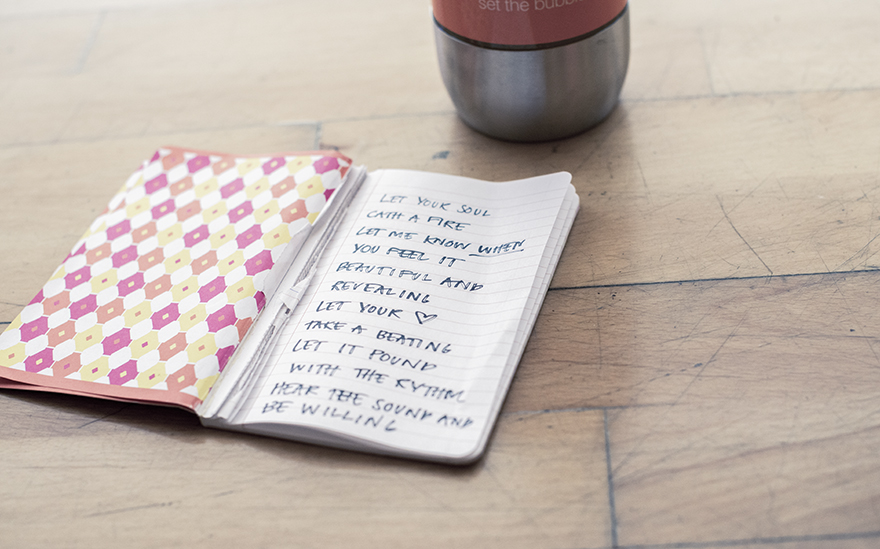 set the bubbl
LET YOUR SOUL
CATH A FIRE
LET ME KNOW WHEN
YOU FEEL IT
BEAUTIFUL AND
REVEALING
LET YOUR ♡
TAKE A BEATING
LET IT POUND
WITH THE RYTHM
HEAR THE SOUND AND
BE WILLING